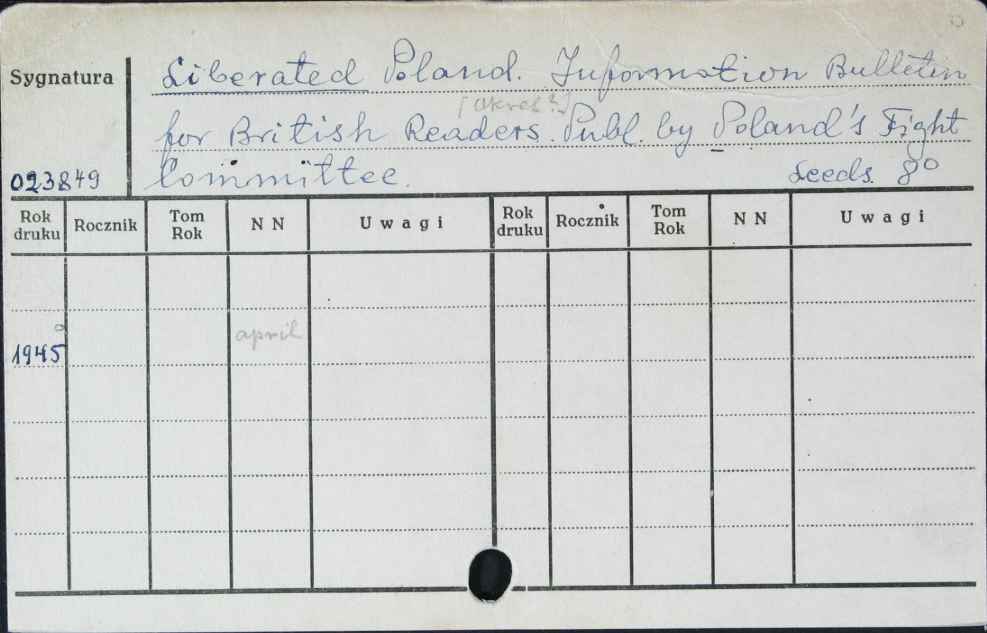 Sygnatura
Liberated Poland. Information Bulletin
[okres?]
for British Readers. Publ. by Poland's Fight
Committee. Leeds. 8°
023849
Rok druku Rocznik Tom Rok NN Uwagi Rok druku Rocznik Tom Rok NN Uwagi
april
1945